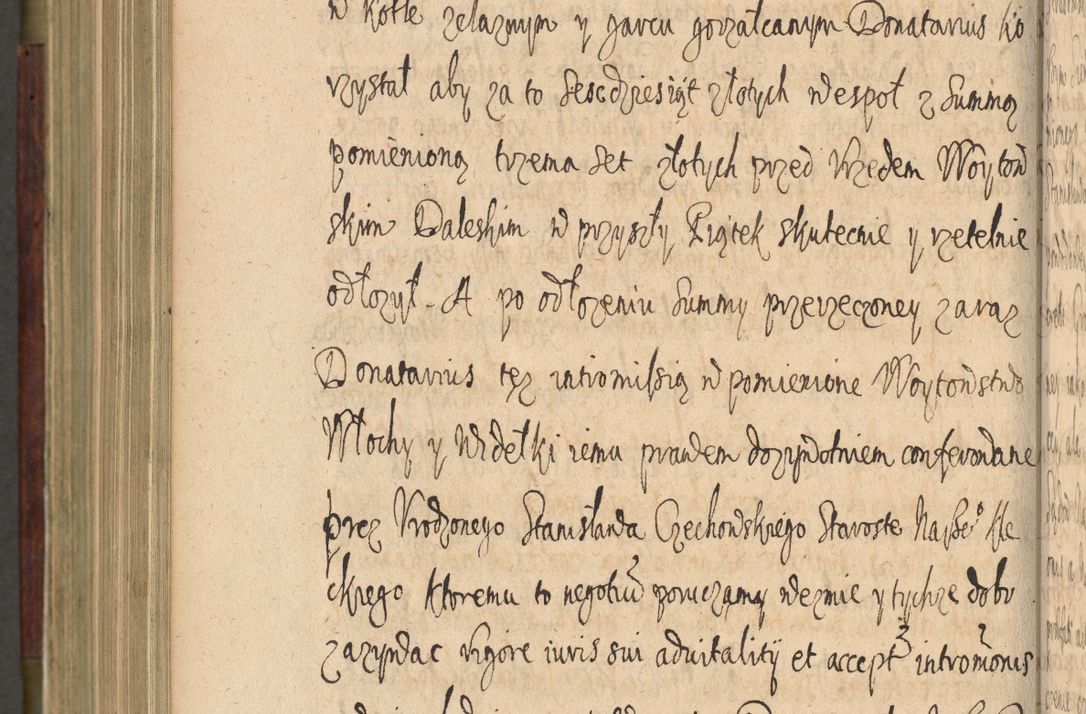 w kotle zelaznym y garcu gorzałcanym Donatarius ko
rzystał aby za to sescdziesiąt złotych wespoł z Summą
pomienioną trzema set złotych przed Vrzedem Woytow
skim Daleskim w przyszły Piątek skutecnie y rzetelnie
odłozył. A po odłozeniu Summy przerzeczoney zaraz
Donatarius tęz intromissią w pomienione Woytowstwo
Włochy y Widełki iemu prawem dozywotniem conferowane
prez Vrodzonego Stanisława Czechowskiego Staroste Nasse° Kie
ckiego ktoremu to negotiu poruczamy wezmie y tychze dobr
zazywac vigore iuris sui advitalitÿ et accept intromonis